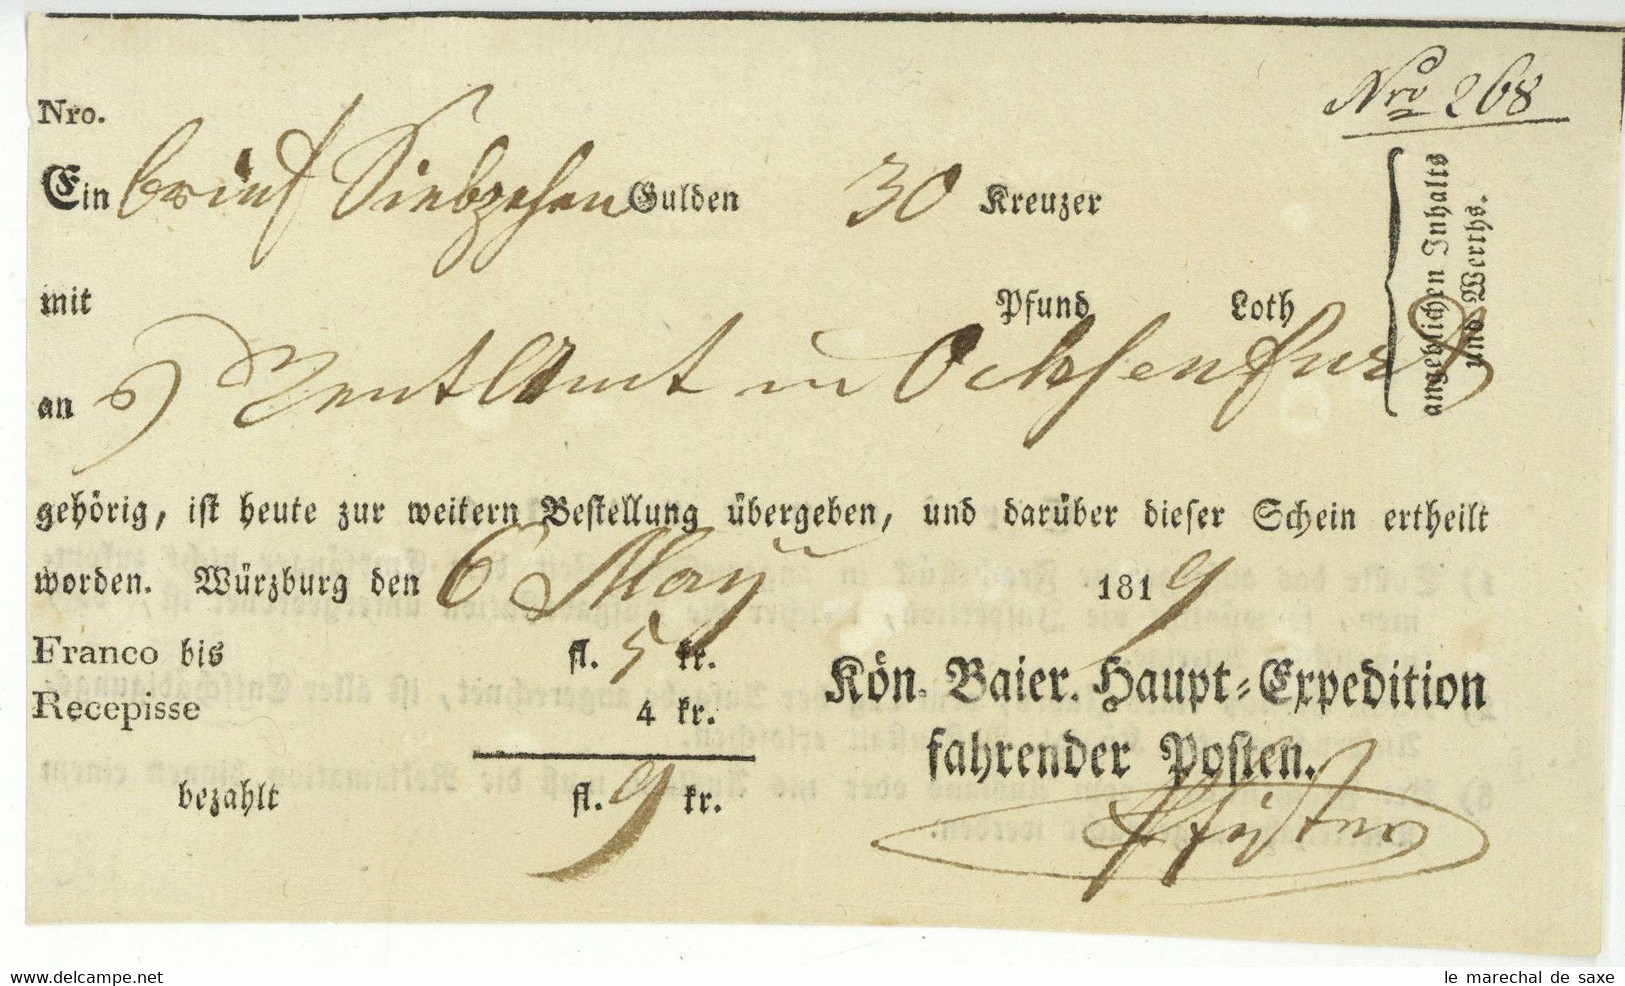 Nro 268
Nro.
Ein brief Siebzehen Gulden 30 Kreuzer
angeblichen Inhalts
und Werths.
mit Pfund Loth
an Rentamt in Ochsenfurt
gehörig, iſt heute zur weitern Beſtellung übergeben, und darüber dieſer Schein ertheilt
worden. Würzburg den 6 May 1819
Franco bis fl. 5 kr.
Recepisse 4 kr.
bezahlt fl. 9 kr.
Kön. Baier. Haupt-Expedition
fahrender Poſten.
www.delcampe.net
le marechal de saxe